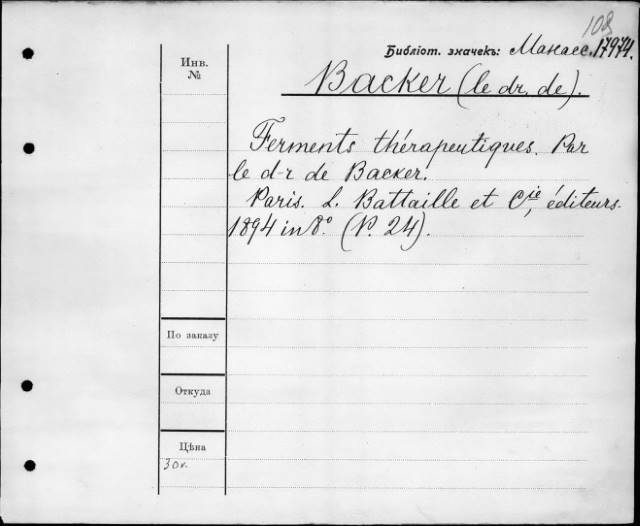 108
Библіот. значекъ: Манасс. 17974.
Инв.
№
Backer (le dr. de).
Ferments thérapeutiques. Par
le d-r de Backer.
Paris. L. Battaille et Cie, éditeurs.
1894 in 8° (P. 24).
По заказу
Откуда
Цѣна
30к.